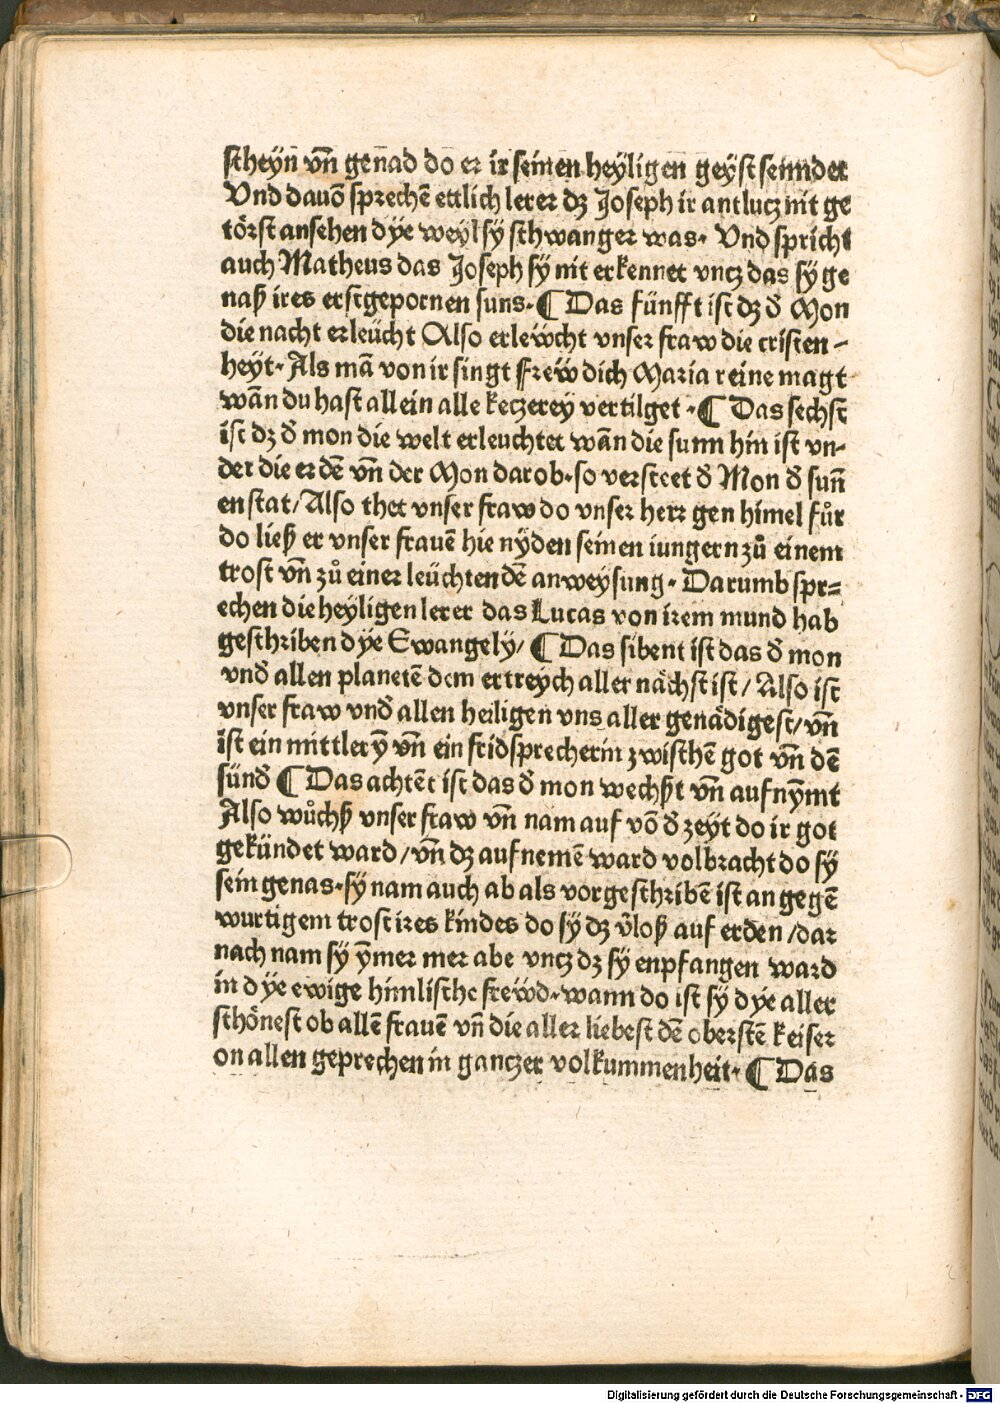 scheyn vñ genad do er ir seinen heyligen geyst senndet
Vnd dauõ sprechẽ ettlich lerer dz Joseph ir antlucz nit ge
törst ansehen dÿe weyl sÿ schwanger was. Vnd spricht
auch Matheus das Joseph sÿ nit erkennet vncz das sÿ ge
naß ires erstgepornen suns. ¶ Das fünfft ist dz ď Mon
die nacht erleücht Also erlewcht vnser fraw die cristen-
heyt. Als mã von ir singt Frew dich Maria reine magt
wãn du hast allein alle keczerey vertilget. ¶ Das sechst
ist dz ď mon die welt erleuchtet wãn die sunn hin ist vn-
der die erdẽ vñ der Mon darob. so versteet ď Mon ď suñ
en stat/ Also thet vnser fraw do vnser herr gen himel fůr
do ließ er vnser frauẽ hie nÿden seinen iungern zů einem
trost vñ zů einer leüchtendẽ anweÿsung. Darumb spr=
echen die heyligen lerer das Lucas von irem mund hab
geschriben dÿe Ewangelÿ/ ¶ Das sibent ist das ď mon
vnď allen planetẽ dem ertreych aller nächst ist/ Also ist
vnser fraw vnď allen heiligen vns aller genädigest/ vñ
ist ein mittlerỹ vñ ein fridsprecherin zwischẽ got vñ dẽ
sünď ¶ Das achtẽt ist das ď mon wechßt vñ aufnỹmt
Also wůchß vnser fraw vñ nam auf võ ď zeyt do ir got
gekündet ward/ vñ dz aufnemẽ ward volbracht do sÿ
sein genas. sÿ nam auch ab als vorgeschribẽ ist an gegẽ
wurtigem trost ires kindes do sÿ dz v̄loß auf erden/ dar
nach nam sÿ ỹmer mer abe vncz dz sÿ enpfangen ward
in dÿe ewige himlische frewd. wann do ist sÿ dÿe aller
schönest ob allẽ frauẽ vñ die aller liebest dẽ oberstẽ keiser
on allen geprechen in ganczer volkummenheit. ¶ Das
Digitalisierung gefördert durch die Deutsche Forschungsgemeinschaft - DFG